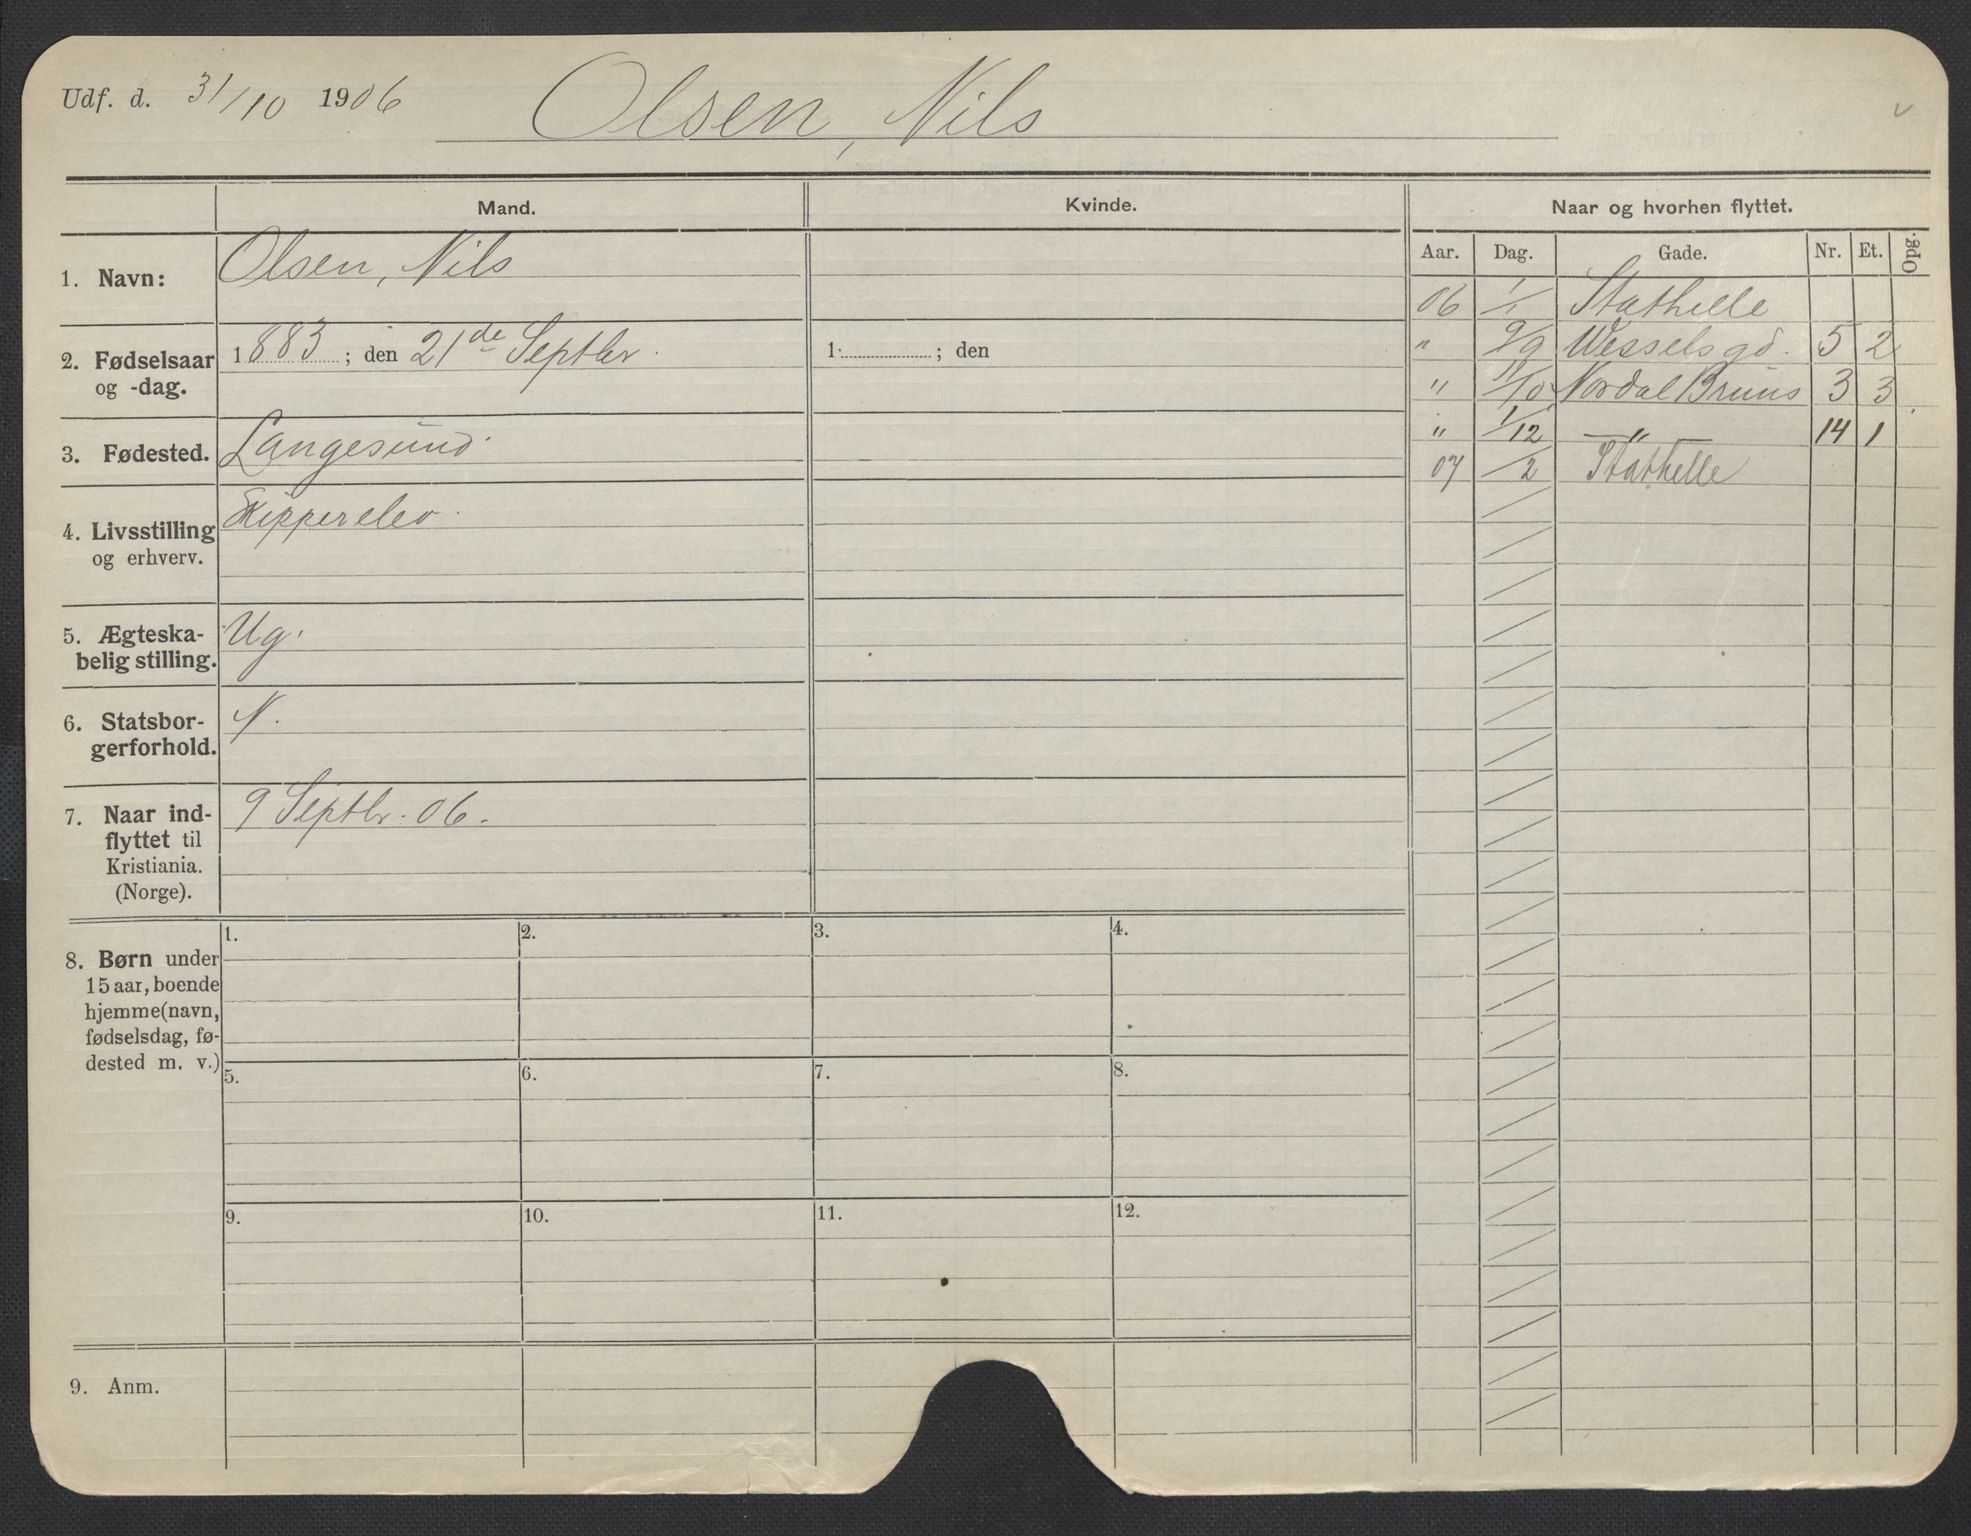 Udf. d. 31/10 1906 Olsen, Nils
Mand. Kvinde. Naar og hvorhen flyttet.
Aar. Dag. Gade. Nr. Et. Opg.
1. Navn: Olsen, Nils
2. Fødselsaar og -dag.
1883; den 21de Septbr.
1 ; den
3. Fødested. Langesund.
4. Livsstilling og erhverv.
Skipperelev.
5. Ægteska-
belig stilling.
Ug.
6. Statsbor-
gerforhold.
N.
7. Naar ind-
flyttet til
Kristiania.
(Norge).
9 Septbr. 06.
06 1/1 Stathelle
" 9/9 Wesselsgd. 5 2
" 11/10 Nordal Bruns 3 3
" 1/12 — " — 14 1
07 /2 Stathelle
8. Børn under
15 aar, boende
hjemme (navn,
fødselsdag, fø-
dested m. v.)
1. 2. 3. 4.
5. 6. 7. 8.
9. 10. 11. 12.
9. Anm.